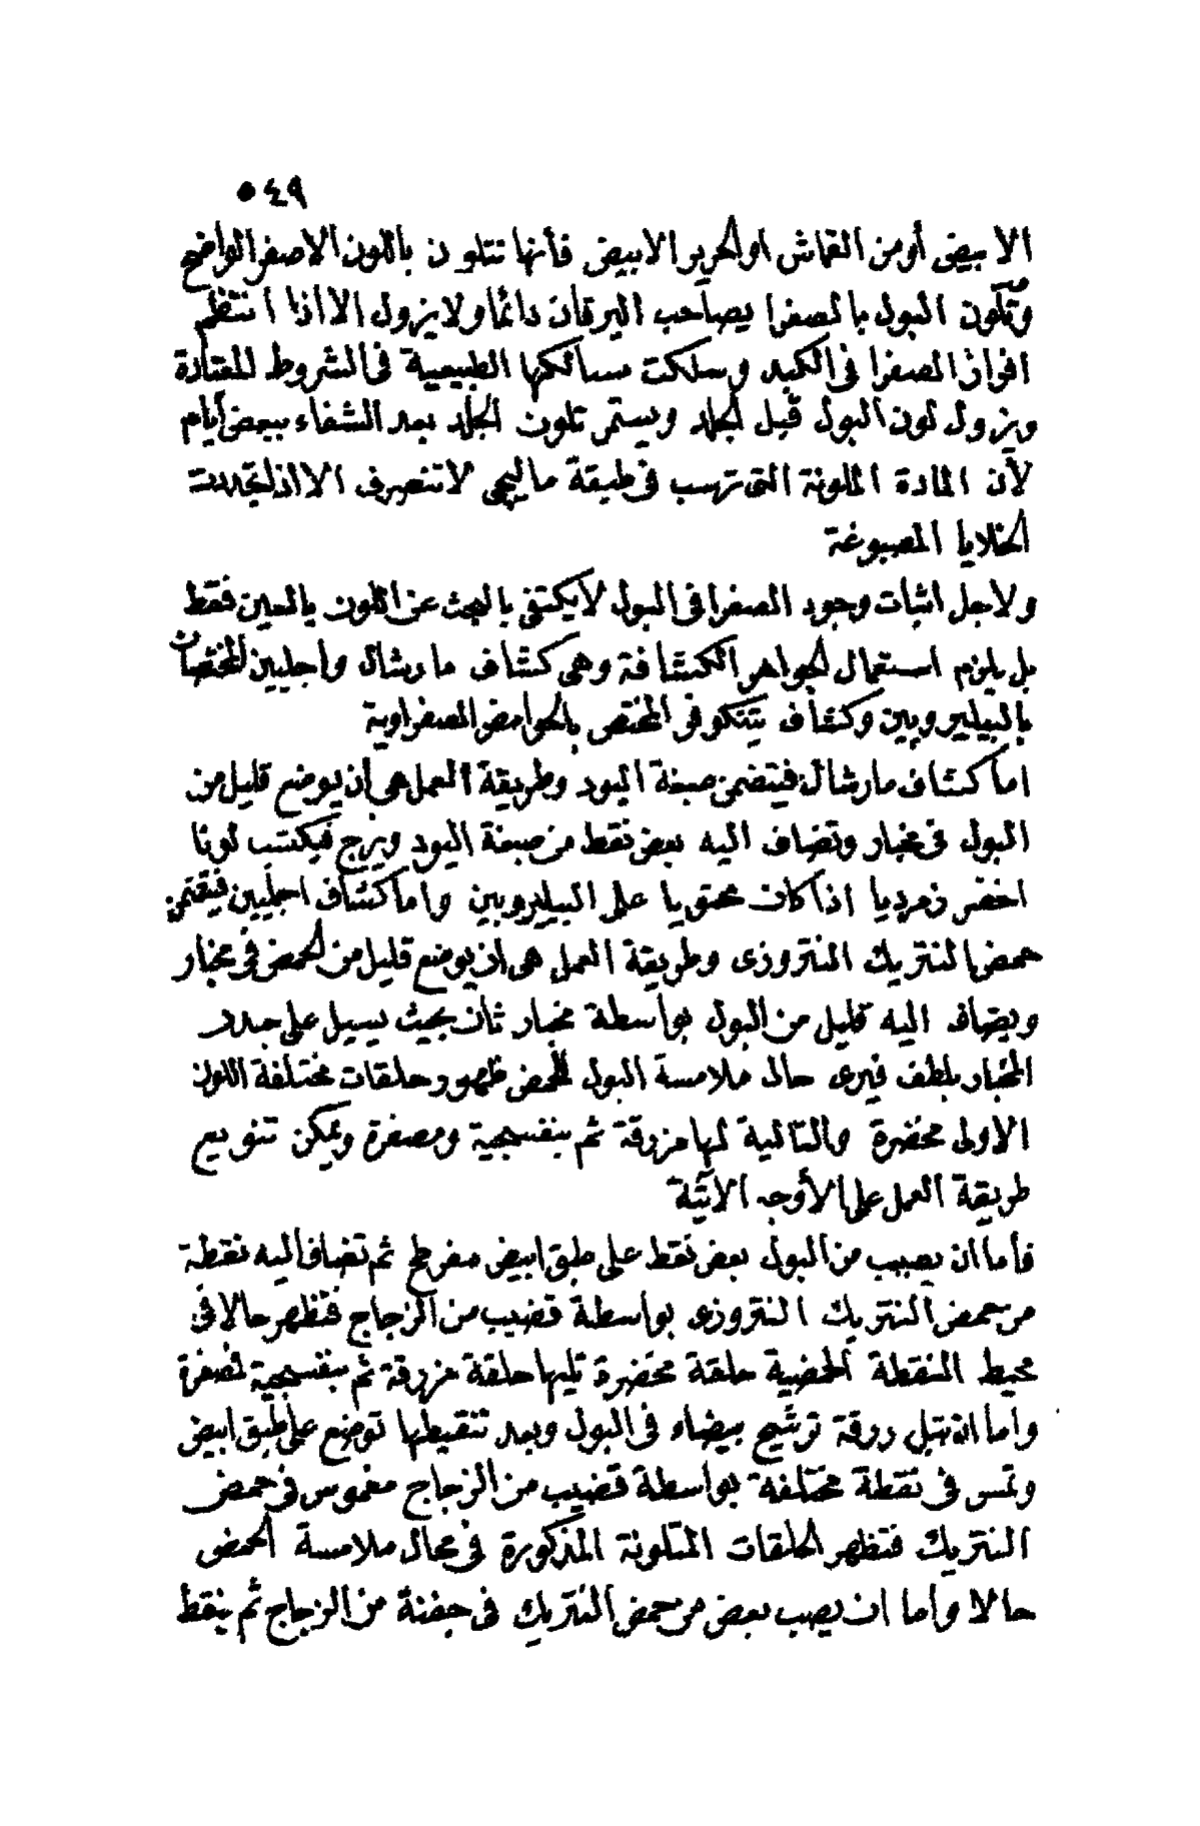 ٥٤٩
الابيض أو من القماش او الحرير الابيض فأنها تتلون باللون الاصفر الواضح
وتلون البول بالصفرا يصاحب اليرقان دائما ولا يزول الا اذا انتظم
افراز الصفرا فى الكبد وسلكت مسالكها الطبيعية فى الشروط المعتادة
ويزول لون البول قبل الجلد ويستمر تلون الجلد بعد الشفاء ببعض أيام
لأن المادة الملونة التى ترسب فى طبقة مالپيجى لا تنصرف الا اذا تجددت
الخلايا المصبوغة
ولاجل اثبات وجود الصفرا فى البول لا يكتفى بالبحث عن اللون بالعين فقط
بل يلزم استعمال الجواهر الكشافة وهى كشاف مارشال واجليين المختصان
بالبيليروبين وكشاف پتنكوفر المختص بالحوامض الصفراوية
اما كشاف مارشال فيتضمن صبغة اليود وطريقة العمل هى أن يوضع قليل من
البول فى مخبار وتضاف اليه بعض نقط من صبغة اليود ويرج فيكتسب لونا
اخضر زمرديا اذا كان محتويا على البيليروبين واما كشاف اجليين فيقتضى
حمض النتريك النتروزى وطريقة العمل هى ان يوضع قليل من الحمض فى مخبار
ويضاف اليه قليل من البول بواسطة مخبار ثان بحيث يسيل على جدر
المخبار بلطف فيرى حال ملامسة البول للحمض ظهور حلقات مختلفة اللون
الاولى مخضرة والتالية لها مزرقة ثم بنفسجية ومصفرة ويمكن تنويع
طريقة العمل على الأوجه الآتية
فأما ان يصبب من البول بعض نقط على طبق ابيض مفرطح ثم تضاف اليه نقطة
من حمض النتريك النتروزى بواسطة قضيب من الزجاج فتظهر حالا فى
محيط النقطة الحمضية حلقة مخضرة تليها حلقة مزرقة ثم بنفسجية فصفرة
واما ان تبل ورقة ترشيح بيضاء فى البول وبعد تنقيطها توضع على طبق ابيض
وتمس فى نقطة مختلفة بواسطة قضيب من الزجاج مغموس فى حمض
النتريك فتظهر الحلقات المتلونة المذكورة فى محال ملامسة الحمض
حالا واما ان يصب بعض من حمض النتريك فى جفنة من الزجاج ثم ينقط